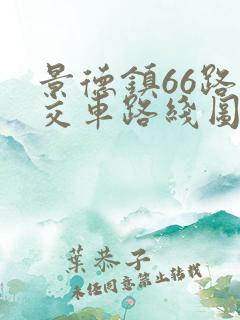 景德鎮66路
交車路綫圖
葉恭子
未经同意禁止转载